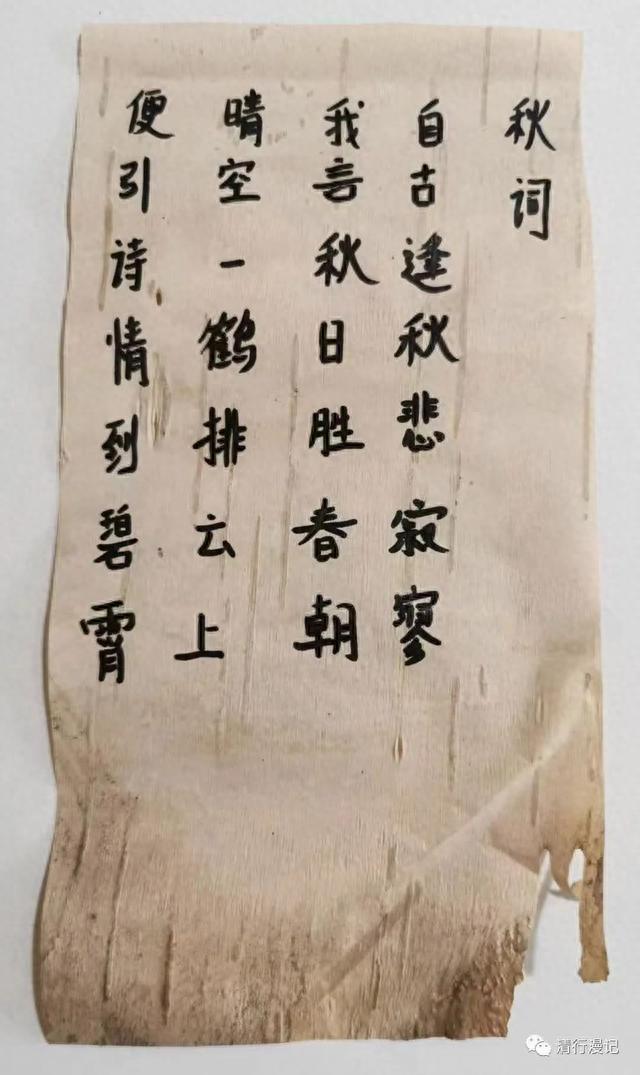 秋词
自古逢秋悲寂寥
我言秋日胜春朝
晴空一鹤排云上
便引诗情到碧霄
清行漫记